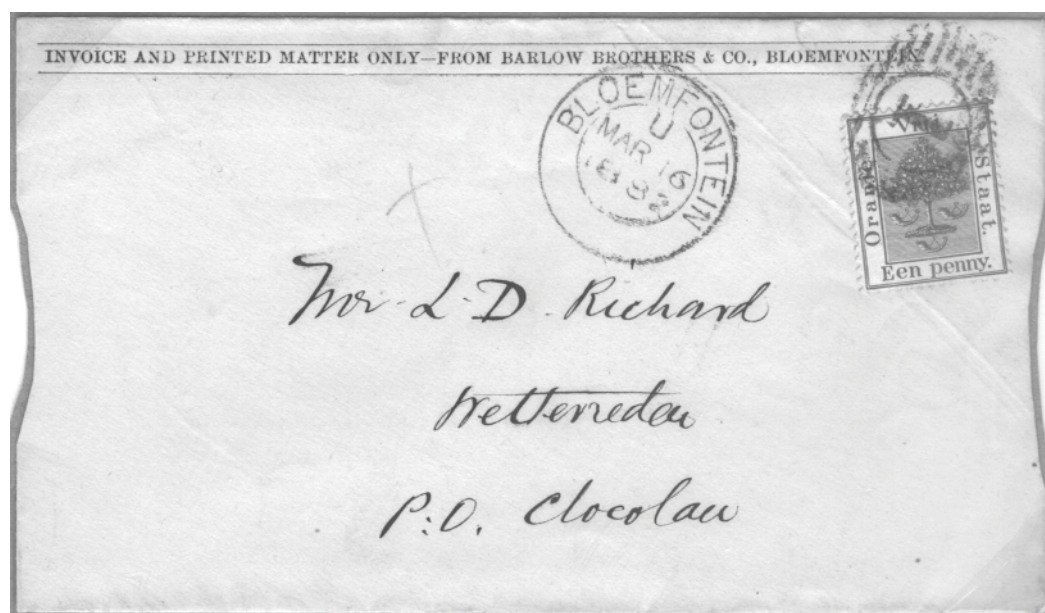 INVOICE AND PRINTED MATTER ONLY—FROM BARLOW BROTHERS & CO., BLOEMFONTEIN.
BLOEMFONTEIN
U
MAR 16
1882
Oranje Vrij Staat.
Een penny.
Mr L. D. Richard
Weltevreden
P.O. Clocolan